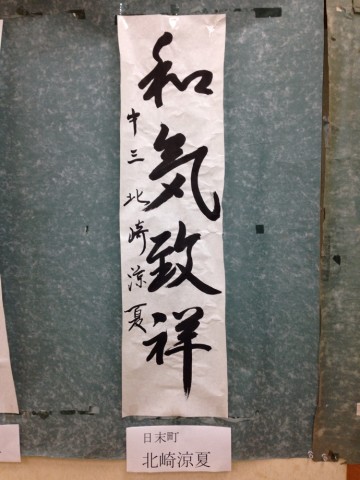 和気致祥
中三 北崎涼夏
日末町
北崎涼夏